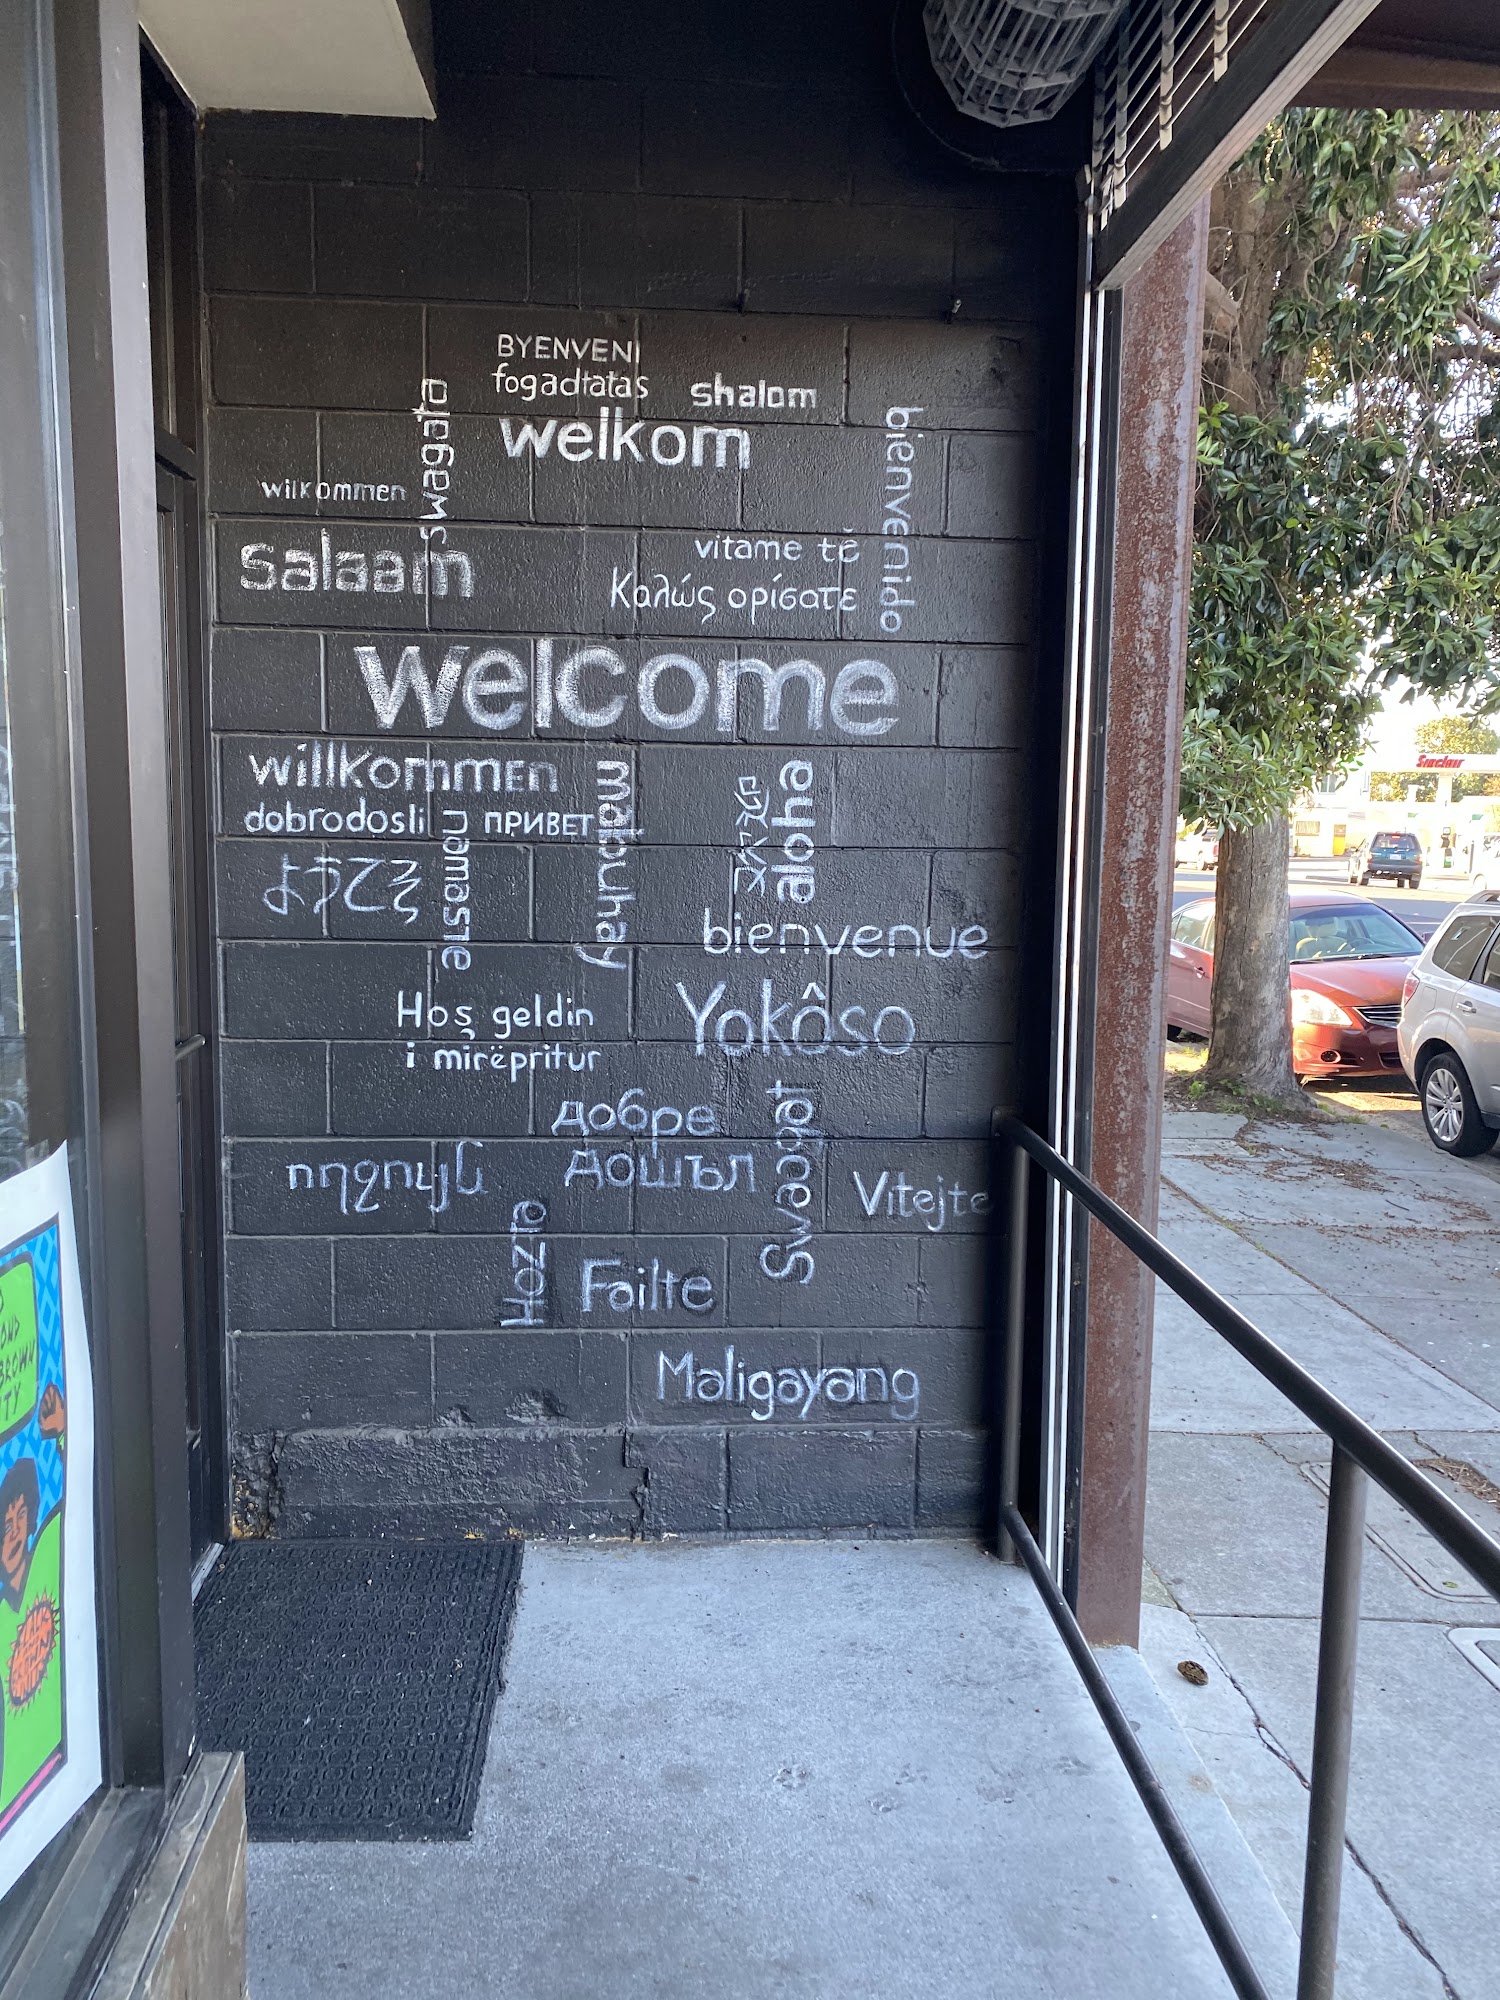 BYENVENI
fogadtatas
shalom
swagata
welkom
bienvenido
wilkommen
salaam
vitame tě
Καλώς ορίσατε
welcome
willkommen
mabuhay
aloha
dobrodosli
namaste
ПРИВЕТ
ようこそ
bienvenue
Hoş geldin
Yokôso
i mirëpritur
добре
дошъл
Swaagat
ողջույն
Vitejte
Hozia
Failte
Maligayang
Sinclair